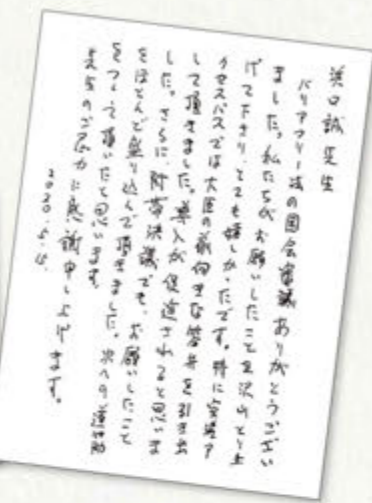 浜口誠先生
バリアフリー法の国会審議ありがとうござい
ました。私たちがお願いしたことを沢山とり上
げて下さり、とても嬉しかったです。特に空港ア
クセスバスでは大臣の前向きな答弁を引き出
して頂きました。導入が促進されると思いま
した。さらに、附帯決議でも、お願いしたこと
をほとんど盛り込んで頂きました。次への道筋
をつくって頂いたと思います。
先生のご尽力に感謝申し上げます。
2020.5.15.